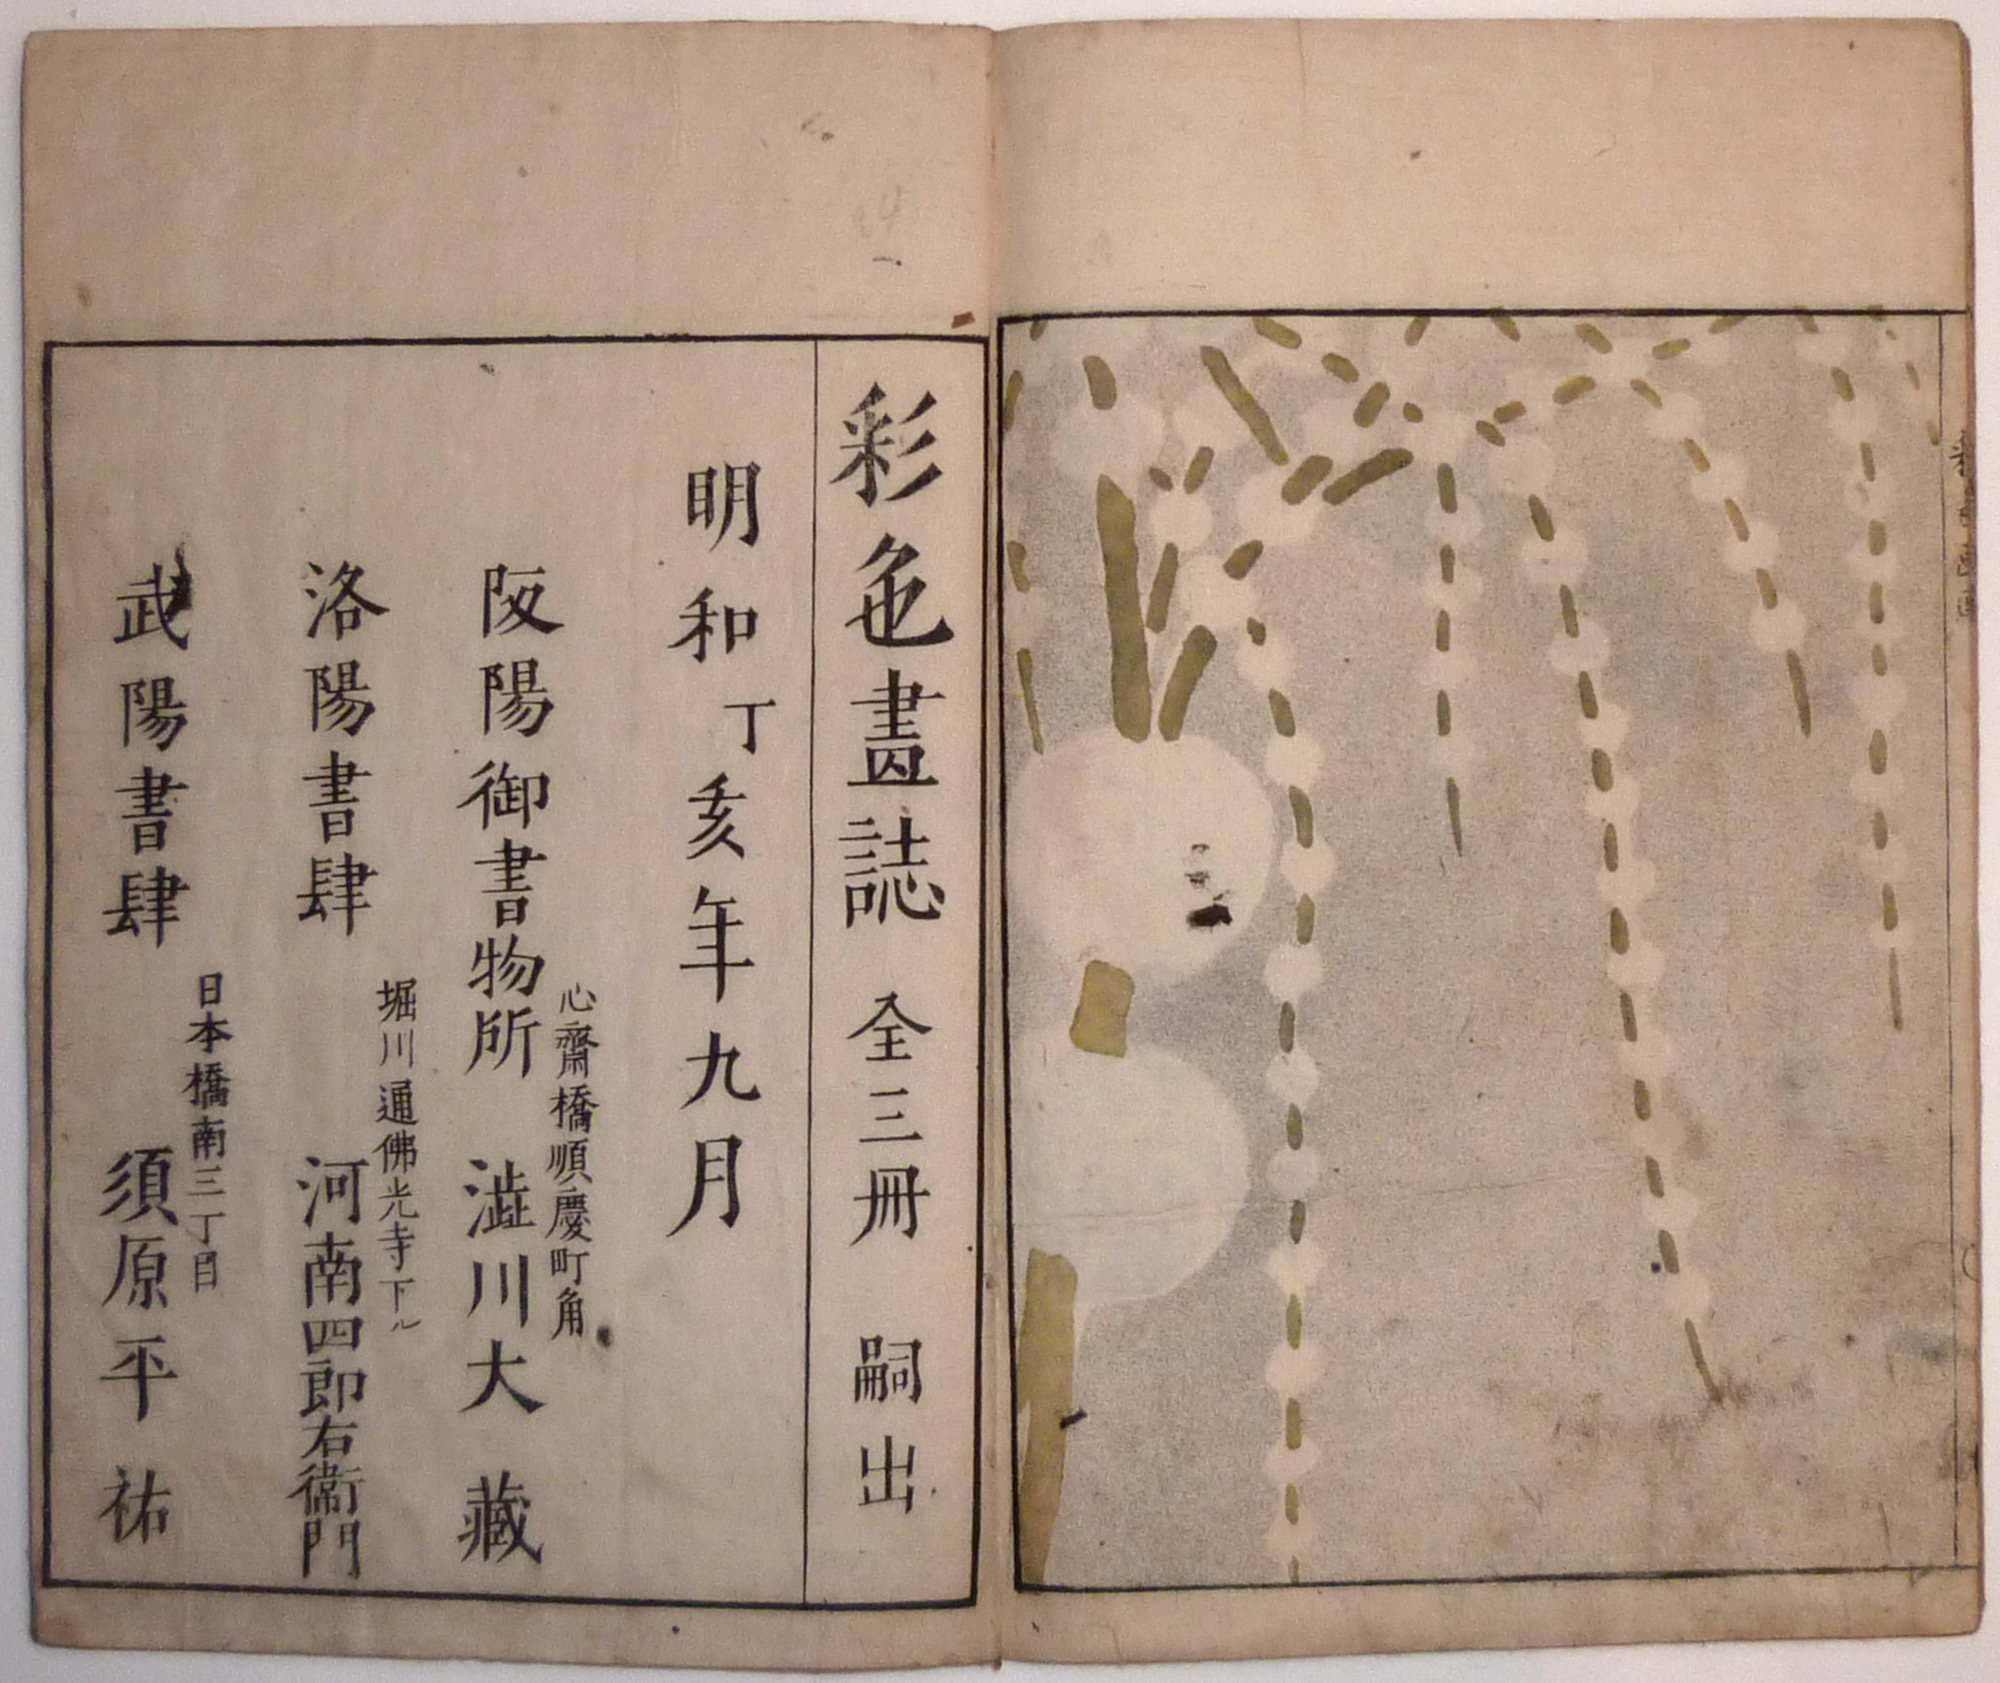 彩色畫誌 全三冊 嗣出
明和丁亥年九月
心齋橋順慶町角
阪陽御書物所 澁川大藏
堀川通佛光寺下ル
洛陽書肆 河南四郎右衛門
日本橋南三丁目
武陽書肆 須原平祐